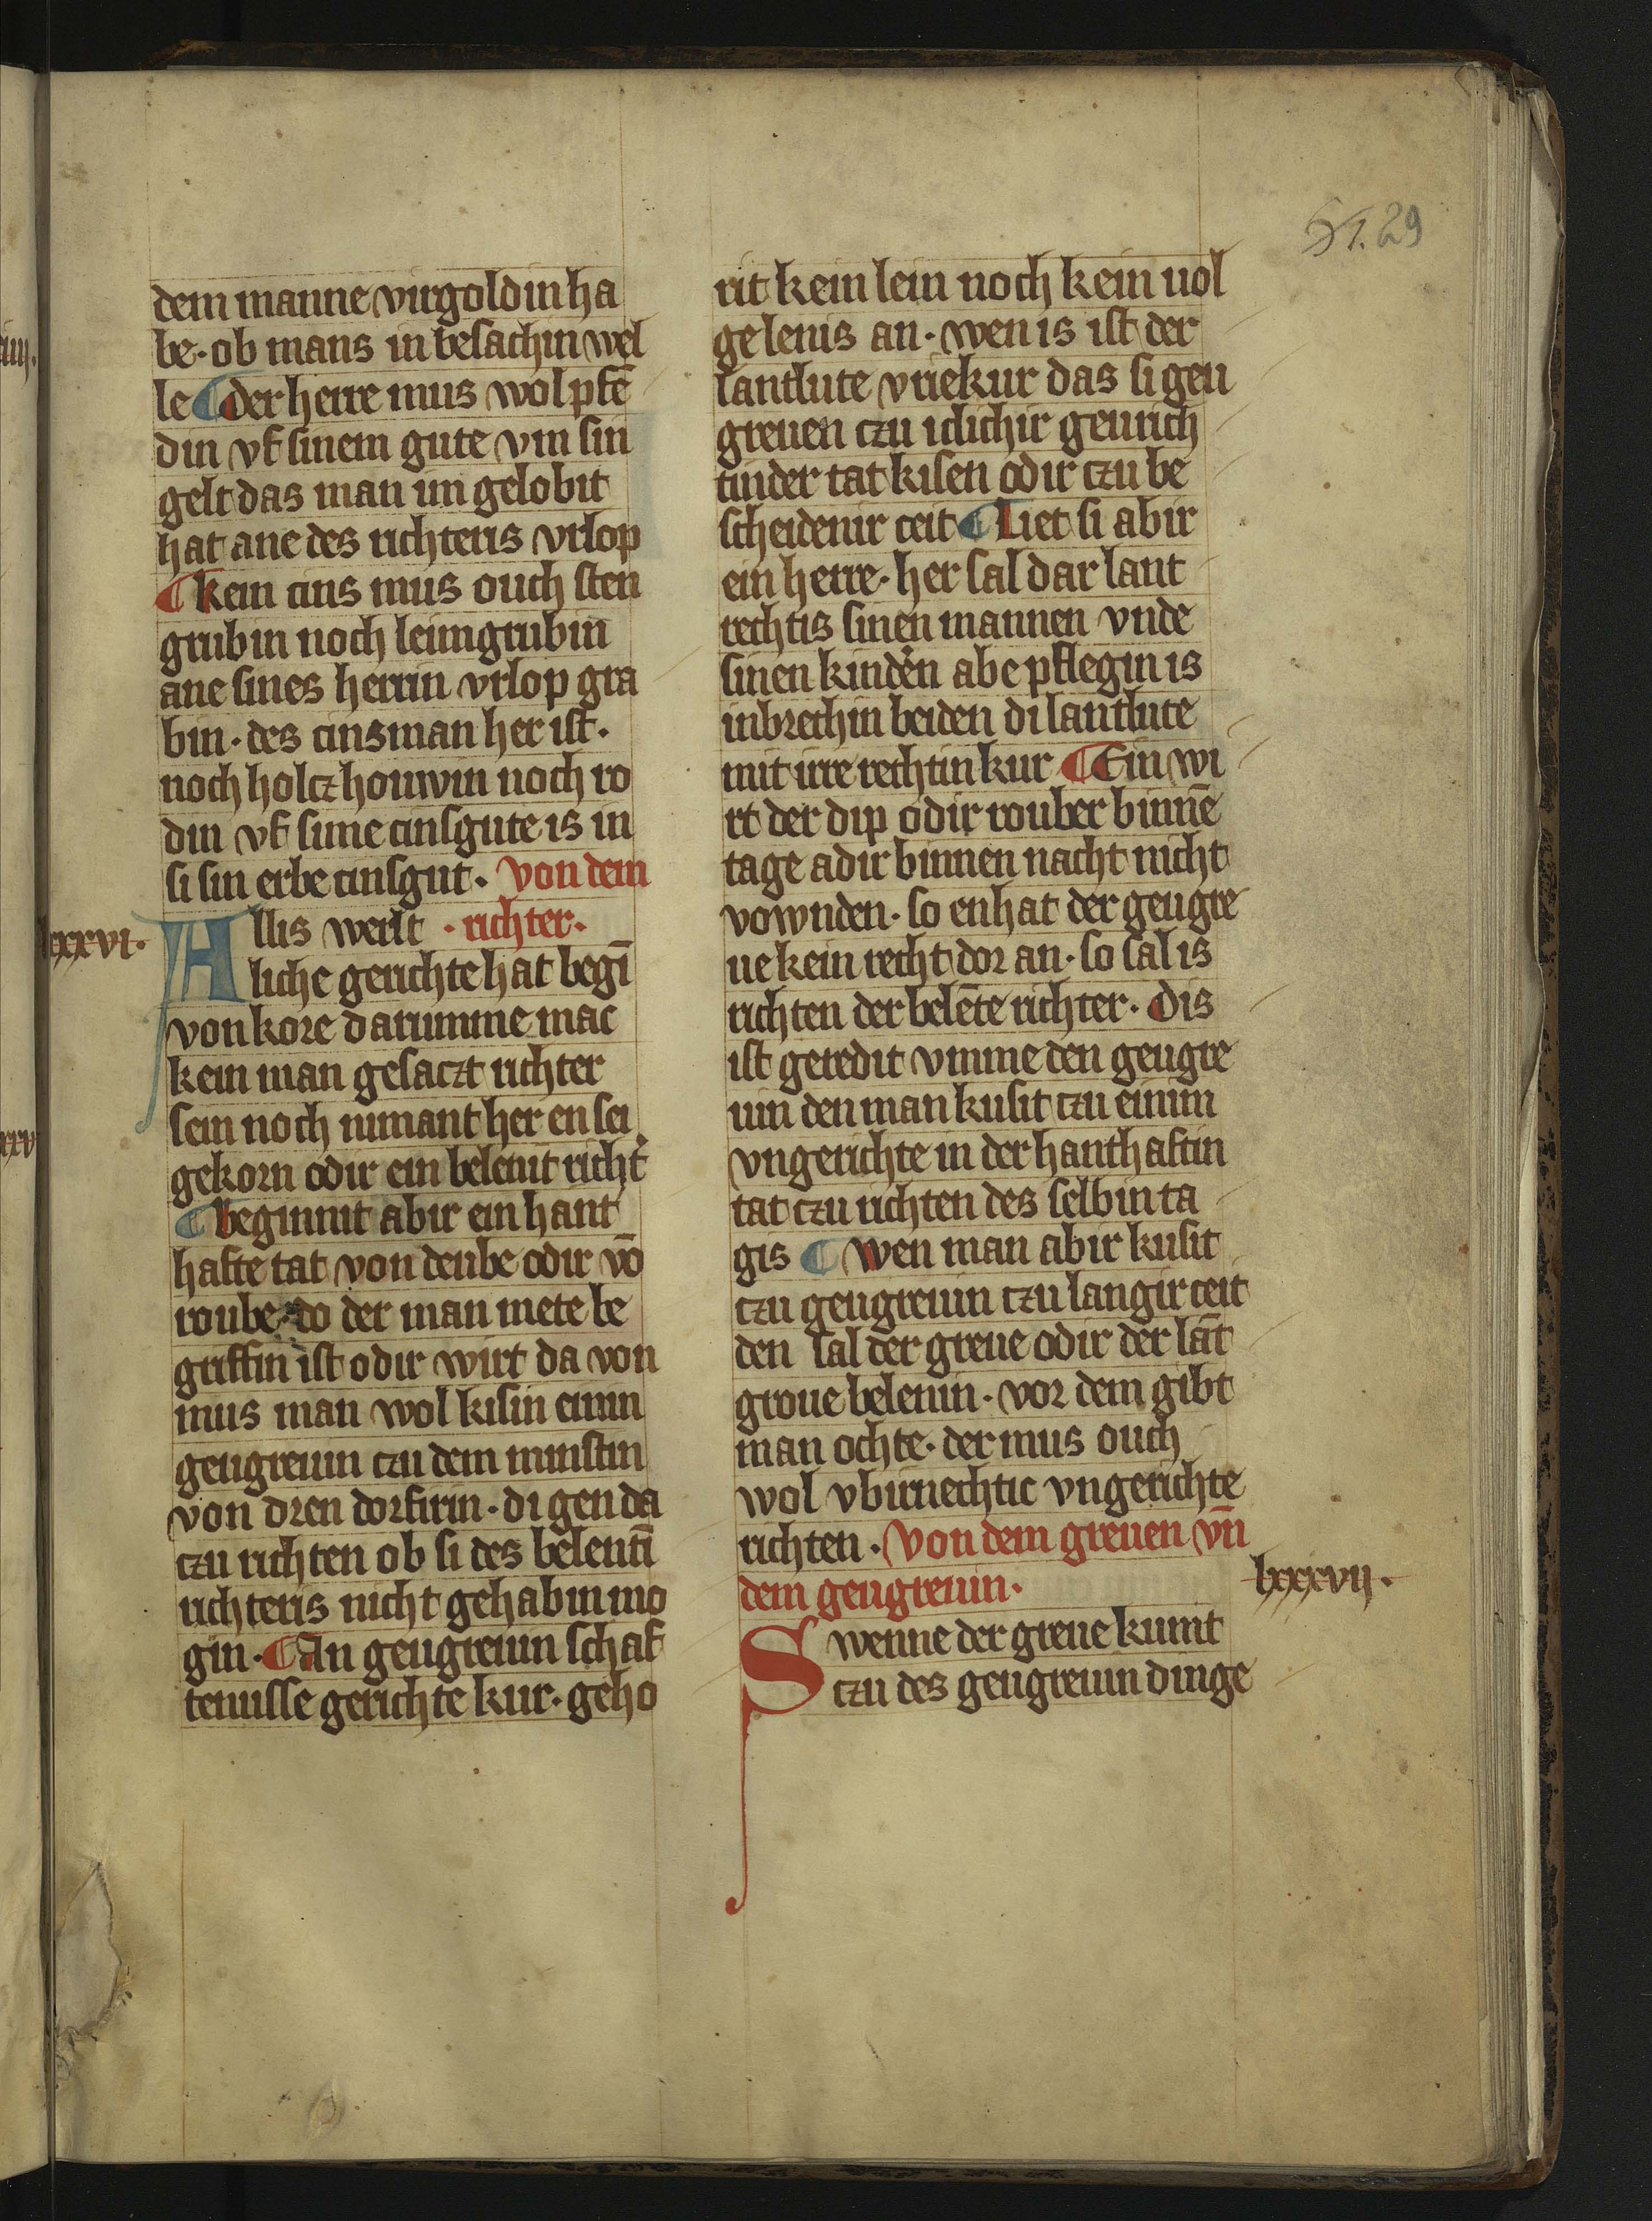 51. 29
dem manne virgoldin ha
be · ob mans in besachin wel
le ¶ der herre mus wol pfē
din vf sinem gute vm sin
gelt das man im gelobit
hat ane des richteris vrlop
¶ kein cins mus ouch sten
grubin noch leimgrubin
ane sines herrin vrlop gra
bin · des cinsman her ist ·
noch holcz houwin noch ro
din vf sime cinsgute is in
si sin erbe cinsgut · von dem
lxxxvi·
Allis werlt · richter ·
liche gerichte hat begī
von kore darumme mac
kein man gesaczt richter
sein noch nimant her en sei
gekorn odir ein belenit richt'
¶ beginnit abir ein hant
hafte tat von deube odir vō
roube do der man mete be
griffin ist odir wirt da von
mus man wol kisin einin
geugreuin czu dem minstin
von dren dorfirin · di gen da
czu richten ob si des belentī
richteris nicht gehabin mo
gin · ¶ An geugreuin schaf
tenisse gerichte kur · geho
rit kein lein noch kein uol
ge lenis an · wen is ist der
lantlute vriekur das si geu
greuen czu iclichir geurich
tinder tat kisen odir czu be
scheidenir ceit ¶ Liet si abir
ein herre · her sal dar lant
rechtis sinen mannen vnde
sinen kind'n abe pflegin is
inbrechin beiden di lantlute
mit irre rechtin kur ¶ Ein wi
rt der dip odir rouber binnē
tage adir binnen nacht nicht
vownden · so enhat der geugre
ue kein recht dor an · so sal is
richten der belēte richter · Dis
ist geredit vmme den geugre
uin den man kusit czu einim
vngerichte in der hanthaftin
tat czu richten des selbin ta
gis ¶ wen man abir kusit
czu geugreuin czu langir ceit
den sal der greue odir der lāt
groue belenin · vor dem gibt
man ochte · der mus ouch
wol vbirnechtic vngerichte
richten · Von dem greuen vn̄
dem geugreuin ·
lxxxvij ·
Swenne der greue kumt
czu des geugreuin dinge